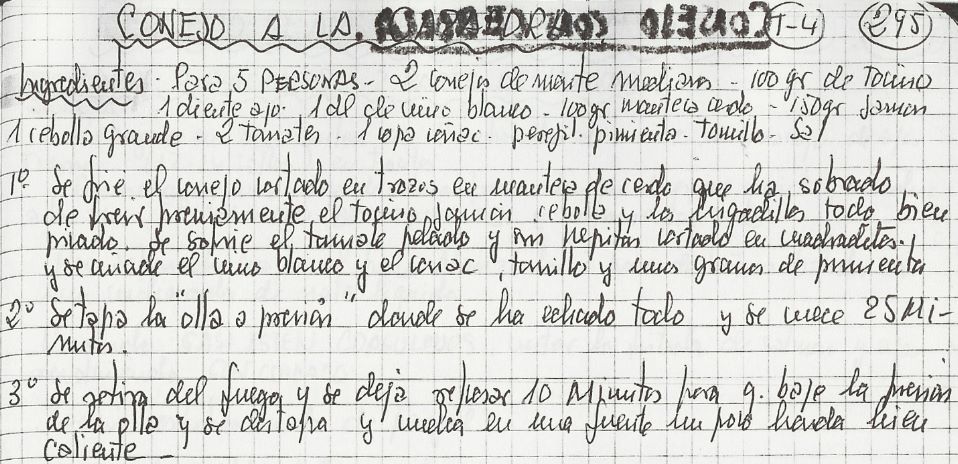 CONEJO A LA CAZADORA T-4 295
Ingredientes - Para 5 PERSONAS - 2 conejos de monte medianos - 100 gr de Tocino
1 diente ajo - 1 dl de vino blanco - 100 gr manteca cerdo - 150 gr Jamon
1 cebolla grande - 2 tomates - 1 copa coñac - perejil - pimienta - Tomillo - Sal
1º Se frie el conejo cortado en trozos en manteca de cerdo que ha sobrado
de freir previamente el tocino, jamon, cebolla y los higadillos todo bien
picado. Se sofrie el tomate pelado y sin pepitas cortado en cuadraditos
y se añade el vino blanco y el coñac, tomillo y unos granos de pimienta
2º Se tapa la "olla a presión" donde se ha echado todo y se cuece 25 Mi-
nutos.
3º Se retira del fuego y se deja reposar 10 Minutos para q. baje la presión
de la olla y se destapa y vuelca en una fuente un poco honda bien
caliente -